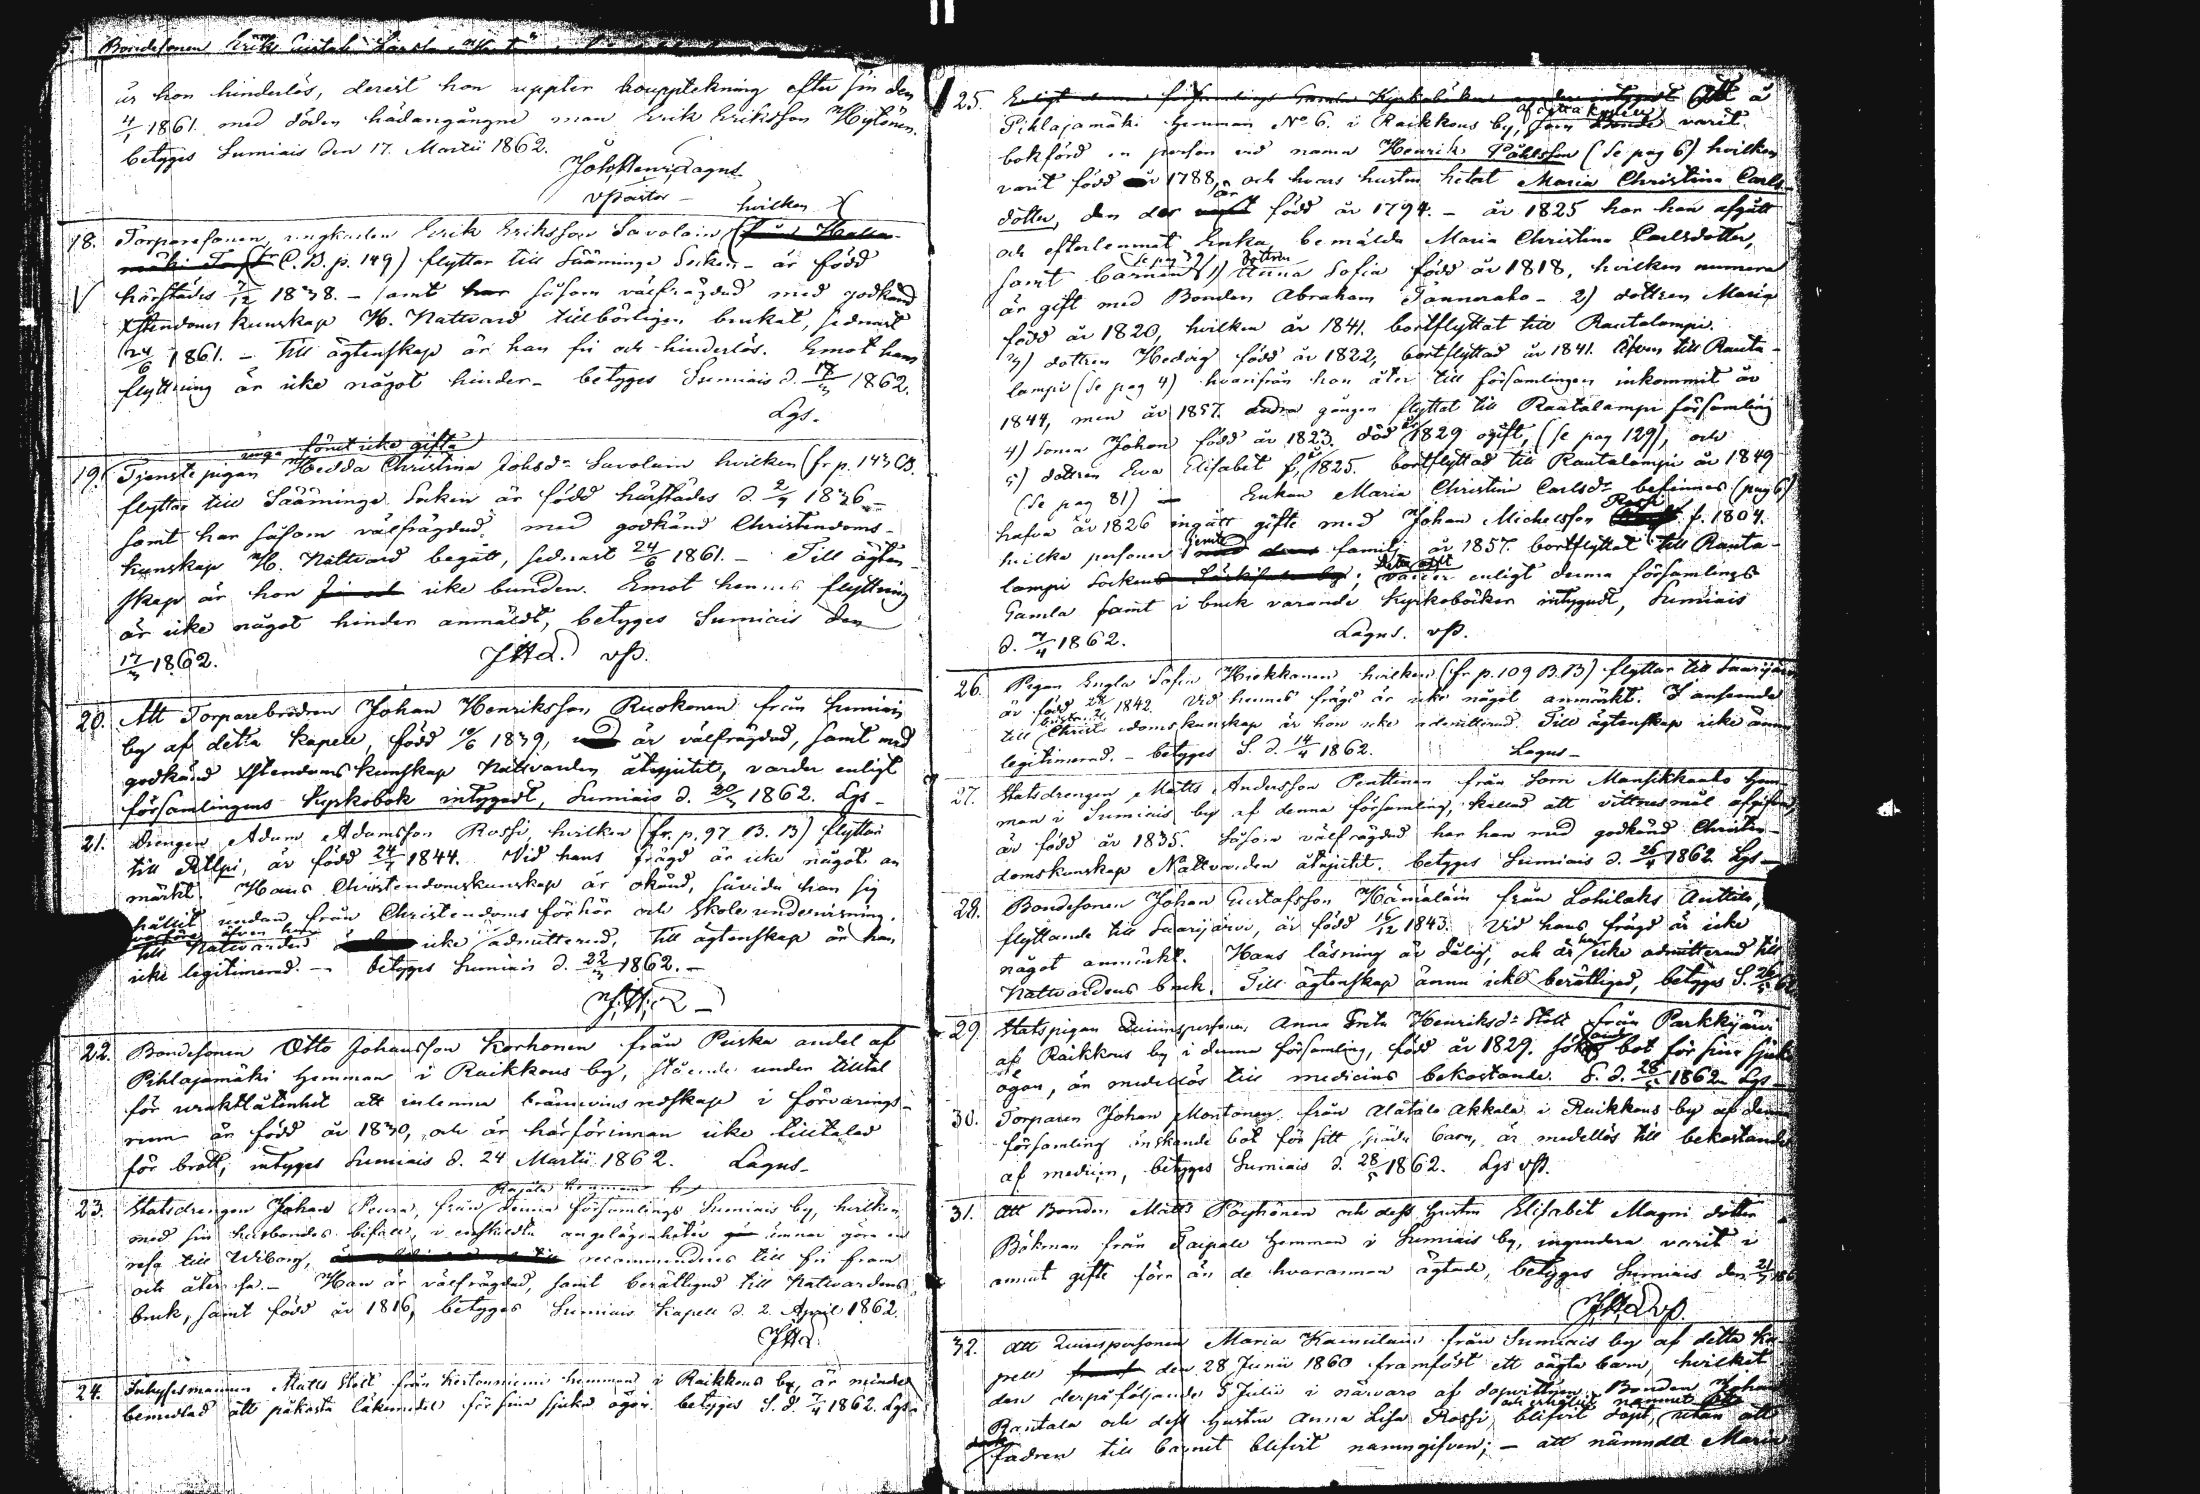 Bondesonen Erik Gustaf
är hon hinderlös, derest hon uppter bouppteckning efter sin den
4/ 1861. med döden hädangångne man Erik Eriksson Hytönen.
betyges Sumiais den 17. Martii 1862.
Joh. Henr. Lagus
vPastor –
18. Torparesonen, ungkarlen Erik Eriksson Savolain hvilken
(fr C. B. p. 149) flyttar till Sääminge Socken – är född
härstädes 7/12 1838. – samt såsom välfrägdad med godkänd
Xstendoms kunskap H. Nattvard tillbörligen brukat, sednast
24/6 1861. – Till ägtenskap är han fri och hinderlös. Emot hans
flyttning är icke något hinder – betyges Sumiais d. 17/3 1862.
Lgs.
19. Tjenstepigan unga förut icke gifta Hedda Christina Johsdr Savolain hvilken (fr p. 143 CB.
flyttar till Sääminge Socken är född härstädes d. 2/4 1836 –
samt har såsom välfrägdad med godkänd Christendoms-
kunskap H. Nattvard begått, sednast 24/6 1861. – Till ägten-
skap är hon icke bunden. Emot hennes flyttning
är icke något hinder anmäldt, betyges Sumiais den
17/3 1862.
JHL. vP.
20. Att Torparebrodren Johan Henriksson Ruokonen från Sumiais
by af detta Kapell, född 10/6 1839, är välfrägdad, samt med
godkänd Xstendoms kunskap Nattvarden åtnjutit, varder enligt
församlingens Kyrkobok intygadt, Sumiais d. 20/3 1862. Lgs –
21. Drengen Adam Adamsson Rossi, hvilken (fr. p. 97 B. B) flyttar
till Rtlpi, är född 24/ 1844. Vid hans frägd är icke något an
märkt. Hans Christendomskunskap är okänd, såvida han sig
hållit undan från Christendoms förhör och Skole undervisning.
varföre äfven han
till Nattvarden icke admitterad. Till ägtenskap är han
icke legitimerad. – betyges Sumiais d. 22/3 1862. –
J. H. L –
22. Bondesonen Otto Johansson Korhonen från Puska andel af
Pihlajamäki Hemman i Raikkous by, stående under tilltal
för uraktlåtenhet att inlemna brännvins redskap i förvarings-
rum är född år 1830, och är härförinnan icke tilltalad
för brott, intyges Sumiais d. 24 Martii 1862. Lagus –
23. Statsdrengen Johan Peura, från Rajala hemman denna församlings Sumiais by, hvilken
med sin husbondes bifall, i enskilda angelägenheter ärnar göra en
resa till Wiborg, recommenderas till fri fram
och återresa. – Han är välfrägdad, samt berättigad till Nattvardens
bruk, samt född år 1816, betyges Sumiais Kapell d. 2. April 1862.
JHL.
24. Inhysesmannen Matts Stolt från hemman i Raikkous by, är mindre
bemedlad att påkosta läkemedel för sina sjuka ögon. betyges S. d. 7/4 1862. Lgs –
25. Enligt denna församlings Gamla Kyrkoböcker varder intygadt Att å
Pihlajamäki Hemman No 6. i Raikkous by, som Bonde varit
bokförd en person vid namn Henrik Påhlsson (Se pag 6) hvilken
varit född år 1788, och hvars hustru hetat Maria Christina Carls-
dotter, den der är född år 1794. – år 1825 har han afgått
och efterlemnat Enka bemälda Maria Christina Carlsdotter,
samt barnen 1) dottren Anna Sofia född år 1818, hvilken numera
är gift med Bonden Abraham Tannerako – 2) dottren Maria
född år 1820, hvilken år 1841. bortflyttat till Rautalampi.
3) dottren Hedvig född år 1822, bortflyttad år 1841. äfven till Rauta-
lampi (Se pag 4) hvarifrån hon åter till församlingen inkommit år
1844, men år 1857. andra gången flyttat till Rautalampi församling
4) Sonen Johan född år 1823. död år 1829 ogift, (Se pag 129), och
5) dottren Eva Elisabet f. år 1825. bortflyttad till Rautalampi år 1849
(Se pag 81) – Enkan Maria Christina Carlsdr befinnes (pag 6)
hafva år 1826 ingått gifte med Johan Michelsson Rossi f. 1804.
hvilka personer jemte familj år 1857. bortflyttat till Rauta-
lampi Socken; Detta allt varder enligt denna församlings
Gamla samt i bruk varande Kyrkoböcker intygadt, Sumiais
d. 7/4 1862. Lagus. vP.
26. Pigan Engla Sofia Hiekkanen hvilken (fr p. 109 B. B) flyttar till Saarijärvi
är född 1842. Vid hennes frägd är icke något anmärkt. I anseende
till Christendomskunskap är hon icke admitterad. Till ägtenskap icke ännu
legitimerad. – betyges S. d. 14/4 1862. Lagus –
27. Statsdrengen Matts Andersson Penttinen från Sorri Mansikkaaho Hem-
man i Sumiais by af denna församling, kallad att vittnesmål afgifva,
är född år 1835. Såsom välfrägdad har han med godkänd Christen-
domskunskap Nattvarden åtnjutit. betyges Sumiais d. 26/4 1862 Lgs –
28. Bondesonen Johan Gustafsson Hämäläin från Lohilaks Anttila,
flyttande till Saarijärvi, är född 16/12 1843. Vid hans frägd är icke
något anmärkt. Hans läsning är dålig, och är han icke admitterad till
Nattvardens bruk. Till ägtenskap ännu icke berättigad, betyges S. 26/ 62
29. Statspigan Qvinnspersonen Anna Greta Henriksdr Stolt från Parkkijärvi
af Raikkous by i denna församling, född år 1829. sökande bot för sina sjuka
ögon, är medellös till medicins bekostande. S. d. 28/5 1862 Lgs –
30. Torparen Johan Montonen från Alatalo Akkala i Raikkous by af denna
församling önskande bot för sitt späda barn, är medellös till bekostande
af medicin, betyges Sumiais d. 28/5 1862. Lgs vP.
31. Att Bonden Matts Pöyhönen och dess Hustru Elisabet Magni dotter
Bökman från Taipale Hemman i Sumiais by, ingendera varit i
annat gifte förr än de hvarannan ägtade, betyges Sumiais den 21/
JHL vP.
32. Att Qvinnspersonen Maria Kainulain från Sumiais by af detta Ka-
pell den 28 Junii 1860 framfödt ett oägta barn, hvilket
den derpåföljande 8 Julii i närvaro af dopvittnen Bonden Johan
Rautala och dess Hustru Anna Lisa Rossi, blifvit döpt, och erhållit namnet Otto utan att
fadren till barnet blifvit namngifven; – att nämndd Maria